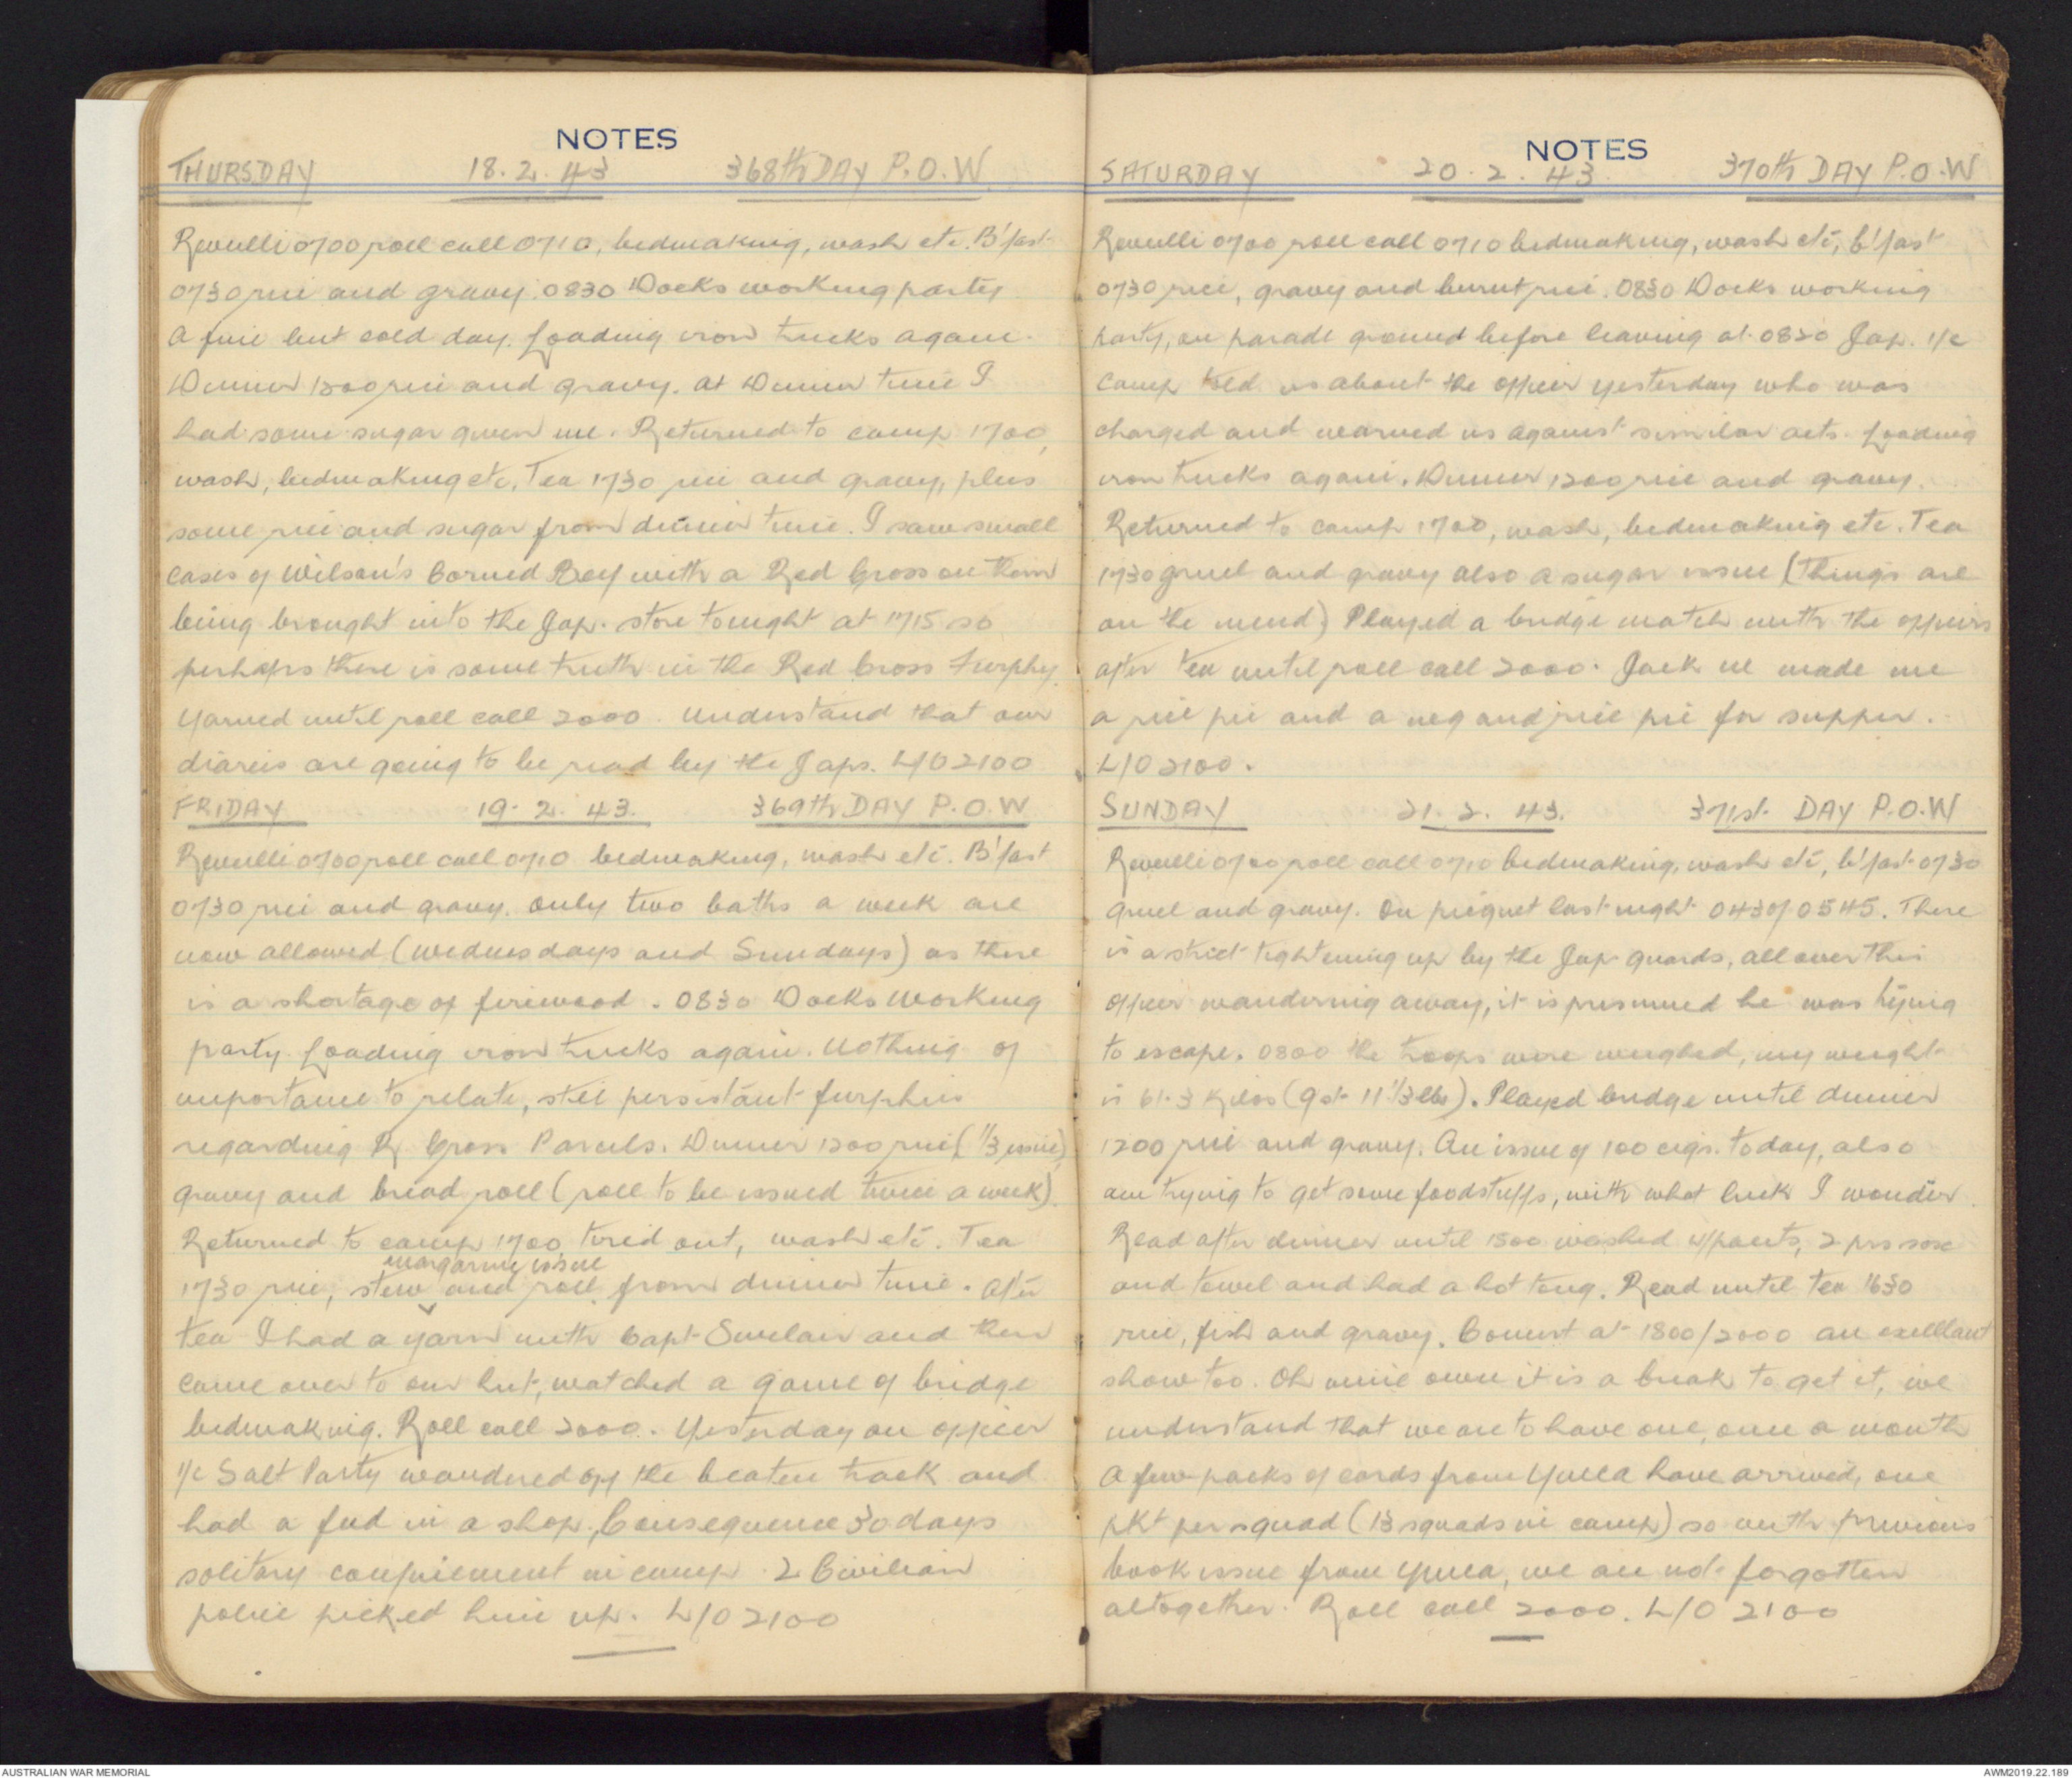 NOTES
THURSDAY 18.2.43 368th DAY P.O.W
Reveilli 0700 roll call 0710, bedmaking, wash etc. B'fast
0730 rice and gravy. 0830 Docks working party
A fine but cold day. Loading iron trucks again.
Dinner 1200 rice and gravy. At Dinner time I
had some sugar given me. Returned to camp 1700,
wash, bedmaking etc, Tea 1730 rice and gravy, plus
some rice and sugar from dinner time. I saw small
cases of Wilson's Corned Beef with a Red Cross on them
being brought into the Jap. store tonight at 1715 so
perhaps there is some truth in the Red Cross Furphy.
Yarned until roll call 2000. Understand that our
diareis are going to be read by the Japs. L/O 2100
FRIDAY 19.2.43. 369th DAY P.O.W
Reveilli 0700 roll call 0710 bedmaking, wash etc. B'fast
0730 rice and gravy. Only two baths a week are
now allowed (Wednesdays and Sundays) as there
is a shortage of firewood. 0830 Docks Working
party. Loading iron trucks again. Nothing of
importance to relate, still persistant furphies
regarding R. Cross Parcels. Dinner 1200 rice (1/3 issue)
gravy and bread roll (roll to be issued twice a week).
Returned to camp 1700, tired out, wash etc. Tea
margarine issue
1730 rice, stew and roll from dinner time. After
tea I had a yarn with Capt. Sinclair and then
came over to our hut, watched a game of bridge
bedmaking. Roll call 2000. Yesterday an officer
i/c Salt Party wandered off the beaten track and
had a feed in a shop. Consequence 30 days
solitary confinement in camp. 2 Civilian
police picked him up. L/O 2100
NOTES
SATURDAY 20.2.43. 370th DAY P.O.W
Reveilli 0700 roll call 0710 bedmaking, wash etc, b'fast
0730 rice, gravy and burnt rice. 0830 Docks working
party, on parade ground before leaving at 0820 Jap. i/c
Camp told us about the officer yesterday who was
charged and warned us against similar acts. Loading
iron trucks again. Dinner 1200 rice and gravy.
Returned to camp 1700, wash, bedmaking etc. Tea
1730 gruel and gravy also a sugar issue (Things are
on the mend) Played a bridge match with the officers
after tea until roll call 2000. Jack made me
a rice pie and a veg and rice pie for supper.
L/O 2100.
SUNDAY 21.2.43. 371st DAY P.O.W
Reveilli 0700 roll call 0710 bedmaking, wash etc, b'fast 0730
Gruel and gravy. On picquet last night 0430/0545. There
is a strict tightening up by the Jap guards, all over this
officer wandering away, it is presumed he was trying
to escape. 0800 the troops were weighed, my weight
is 61.3 Kilos (9st 11 1/3 lbs). Played bridge until dinner
1200 rice and gravy. An issue of 100 cigs. today, also
am trying to get some foodstuffs, with what luck I wonder.
Read after dinner until 1500 washed u/pants, 2 prs sox
and towel and had a hot tong. Read until tea 1630
rice, fish and gravy. Concert at 1800/2000 an exellant
show too. Oh mine own it is a break to get it, we
understand that we are to have one, once a month
A few packs of cards from Ymca have arrived, one
pkt per squad (13 squads in camp) so with previous
book issue from Ymca, we are not forgotten
altogether. Roll call 2000. L/O 2100
AUSTRALIAN WAR MEMORIAL
AWM2019.22.189